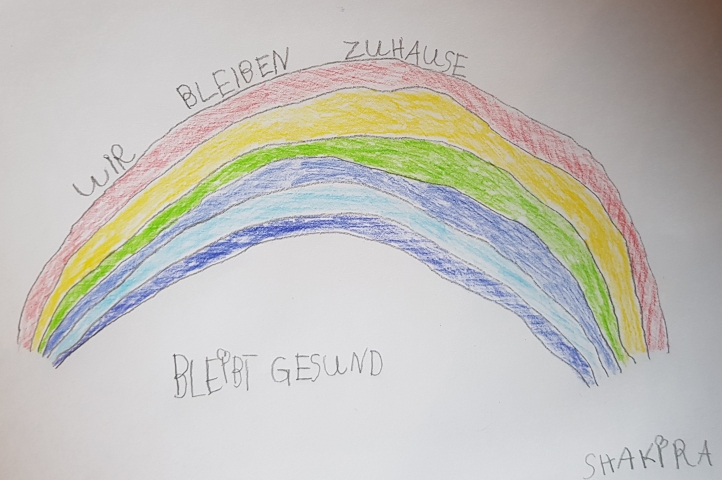 WIR BLEIBEN ZUHAUSE
BLEIBT GESUND
SHAKIRA